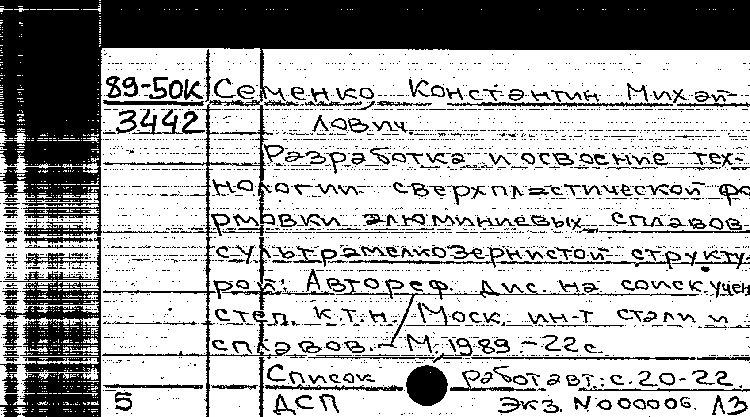 89-50К Семенко, Константин Михай-
3442 лович.
Разработка и освоение тех-
нологии сверхпластической фо
рмовки алюминиевых сплавов
с ультрамелкозернистой структу-
рой: Автореф. дис. на соиск. учен
степ. к.т.н. / Моск. ин-т стали и
сплавов. - М, 1989 - 22 с
Список работ авт.: с. 20-22
5 ДСП Экз. N 000006 ЛЗ